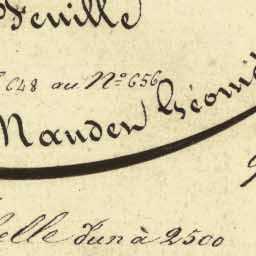 Feuille
648 au Nº 656
Nauden Géomè
elle d'un à 2500